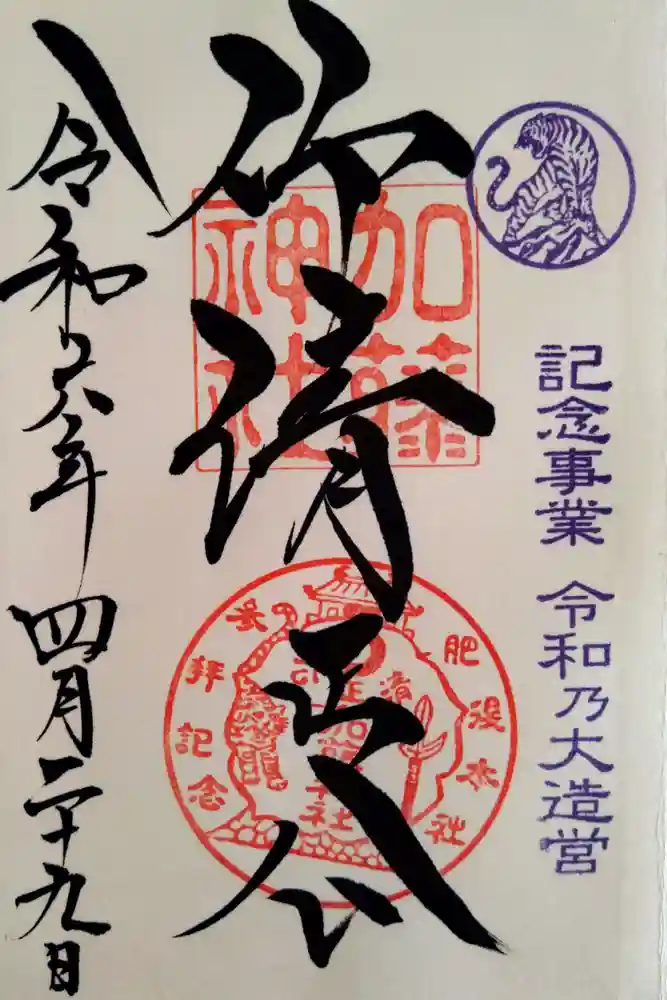 記念事業 令和乃大造営
加藤
神社
仰清正公
肥後本社
参拝記念
令和六年 四月二十九日